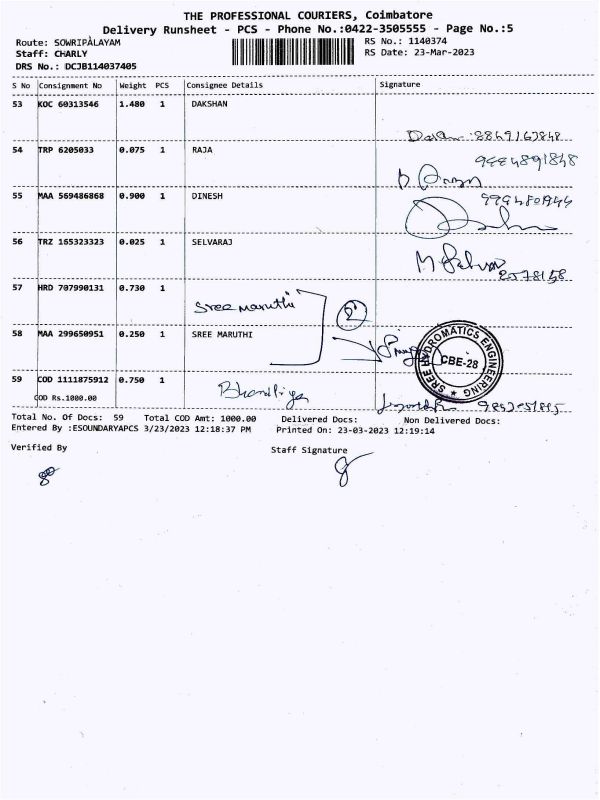 THE PROFESSIONAL COURIERS, Coimbatore
Delivery Runsheet - PCS - Phone No.:0422-3505555 - Page No.:5
Route: SOWRIPALAYAM RS No.: 1140374
Staff: CHARLY RS Date: 23-Mar-2023
DRS No.: DCJB114037405
S No Consignment No Weight PCS Consignee Details Signature
53 KOC 60313546 1.480 1 DAKSHAN
54 TRP 6205033 0.075 1 RAJA
55 MAA 569486868 0.900 1 DINESH
56 TRZ 165323323 0.025 1 SELVARAJ
57 HRD 707990131 0.730 1
Sree maruthi 2
58 MAA 299650951 0.250 1 SREE MARUTHI
SREE HYDROMATICS ENGINEERING
CBE-28
59 COD 1111875912 0.750 1
COD Rs.1000.00
Total No. Of Docs: 59 Total COD Amt: 1000.00 Delivered Docs: Non Delivered Docs:
Entered By :ESOUNDARYAPCS 3/23/2023 12:18:37 PM Printed On: 23-03-2023 12:19:14
Verified By Staff Signature